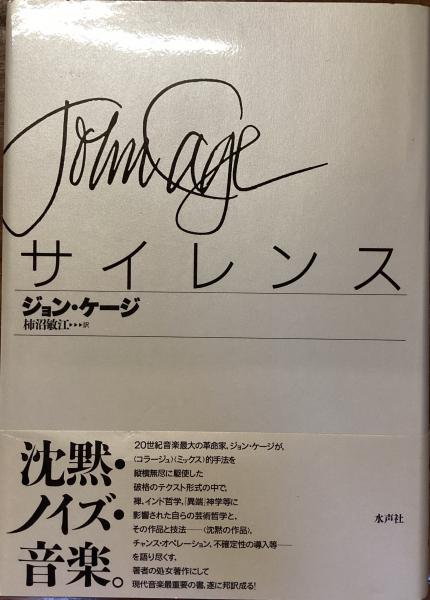 John Cage
サイレンス
ジョン・ケージ
柿沼敏江▸▸▸訳
沈黙・
ノイズ・
音楽。
20世紀音楽最大の革命家、ジョン・ケージが、
〈コラージュ〉〈ミックス〉的手法を
縦横無尽に駆使した
破格のテクスト形式の中で、
禅、インド哲学、「異端」神学等に
影響された自らの芸術哲学と、
その作品と技法――〈沈黙の作品〉、
チャンス・オペレーション、不確定性の導入等――
を語り尽くす。
著者の処女著作にして
現代音楽最重要の書、遂に邦訳成る!
水声社